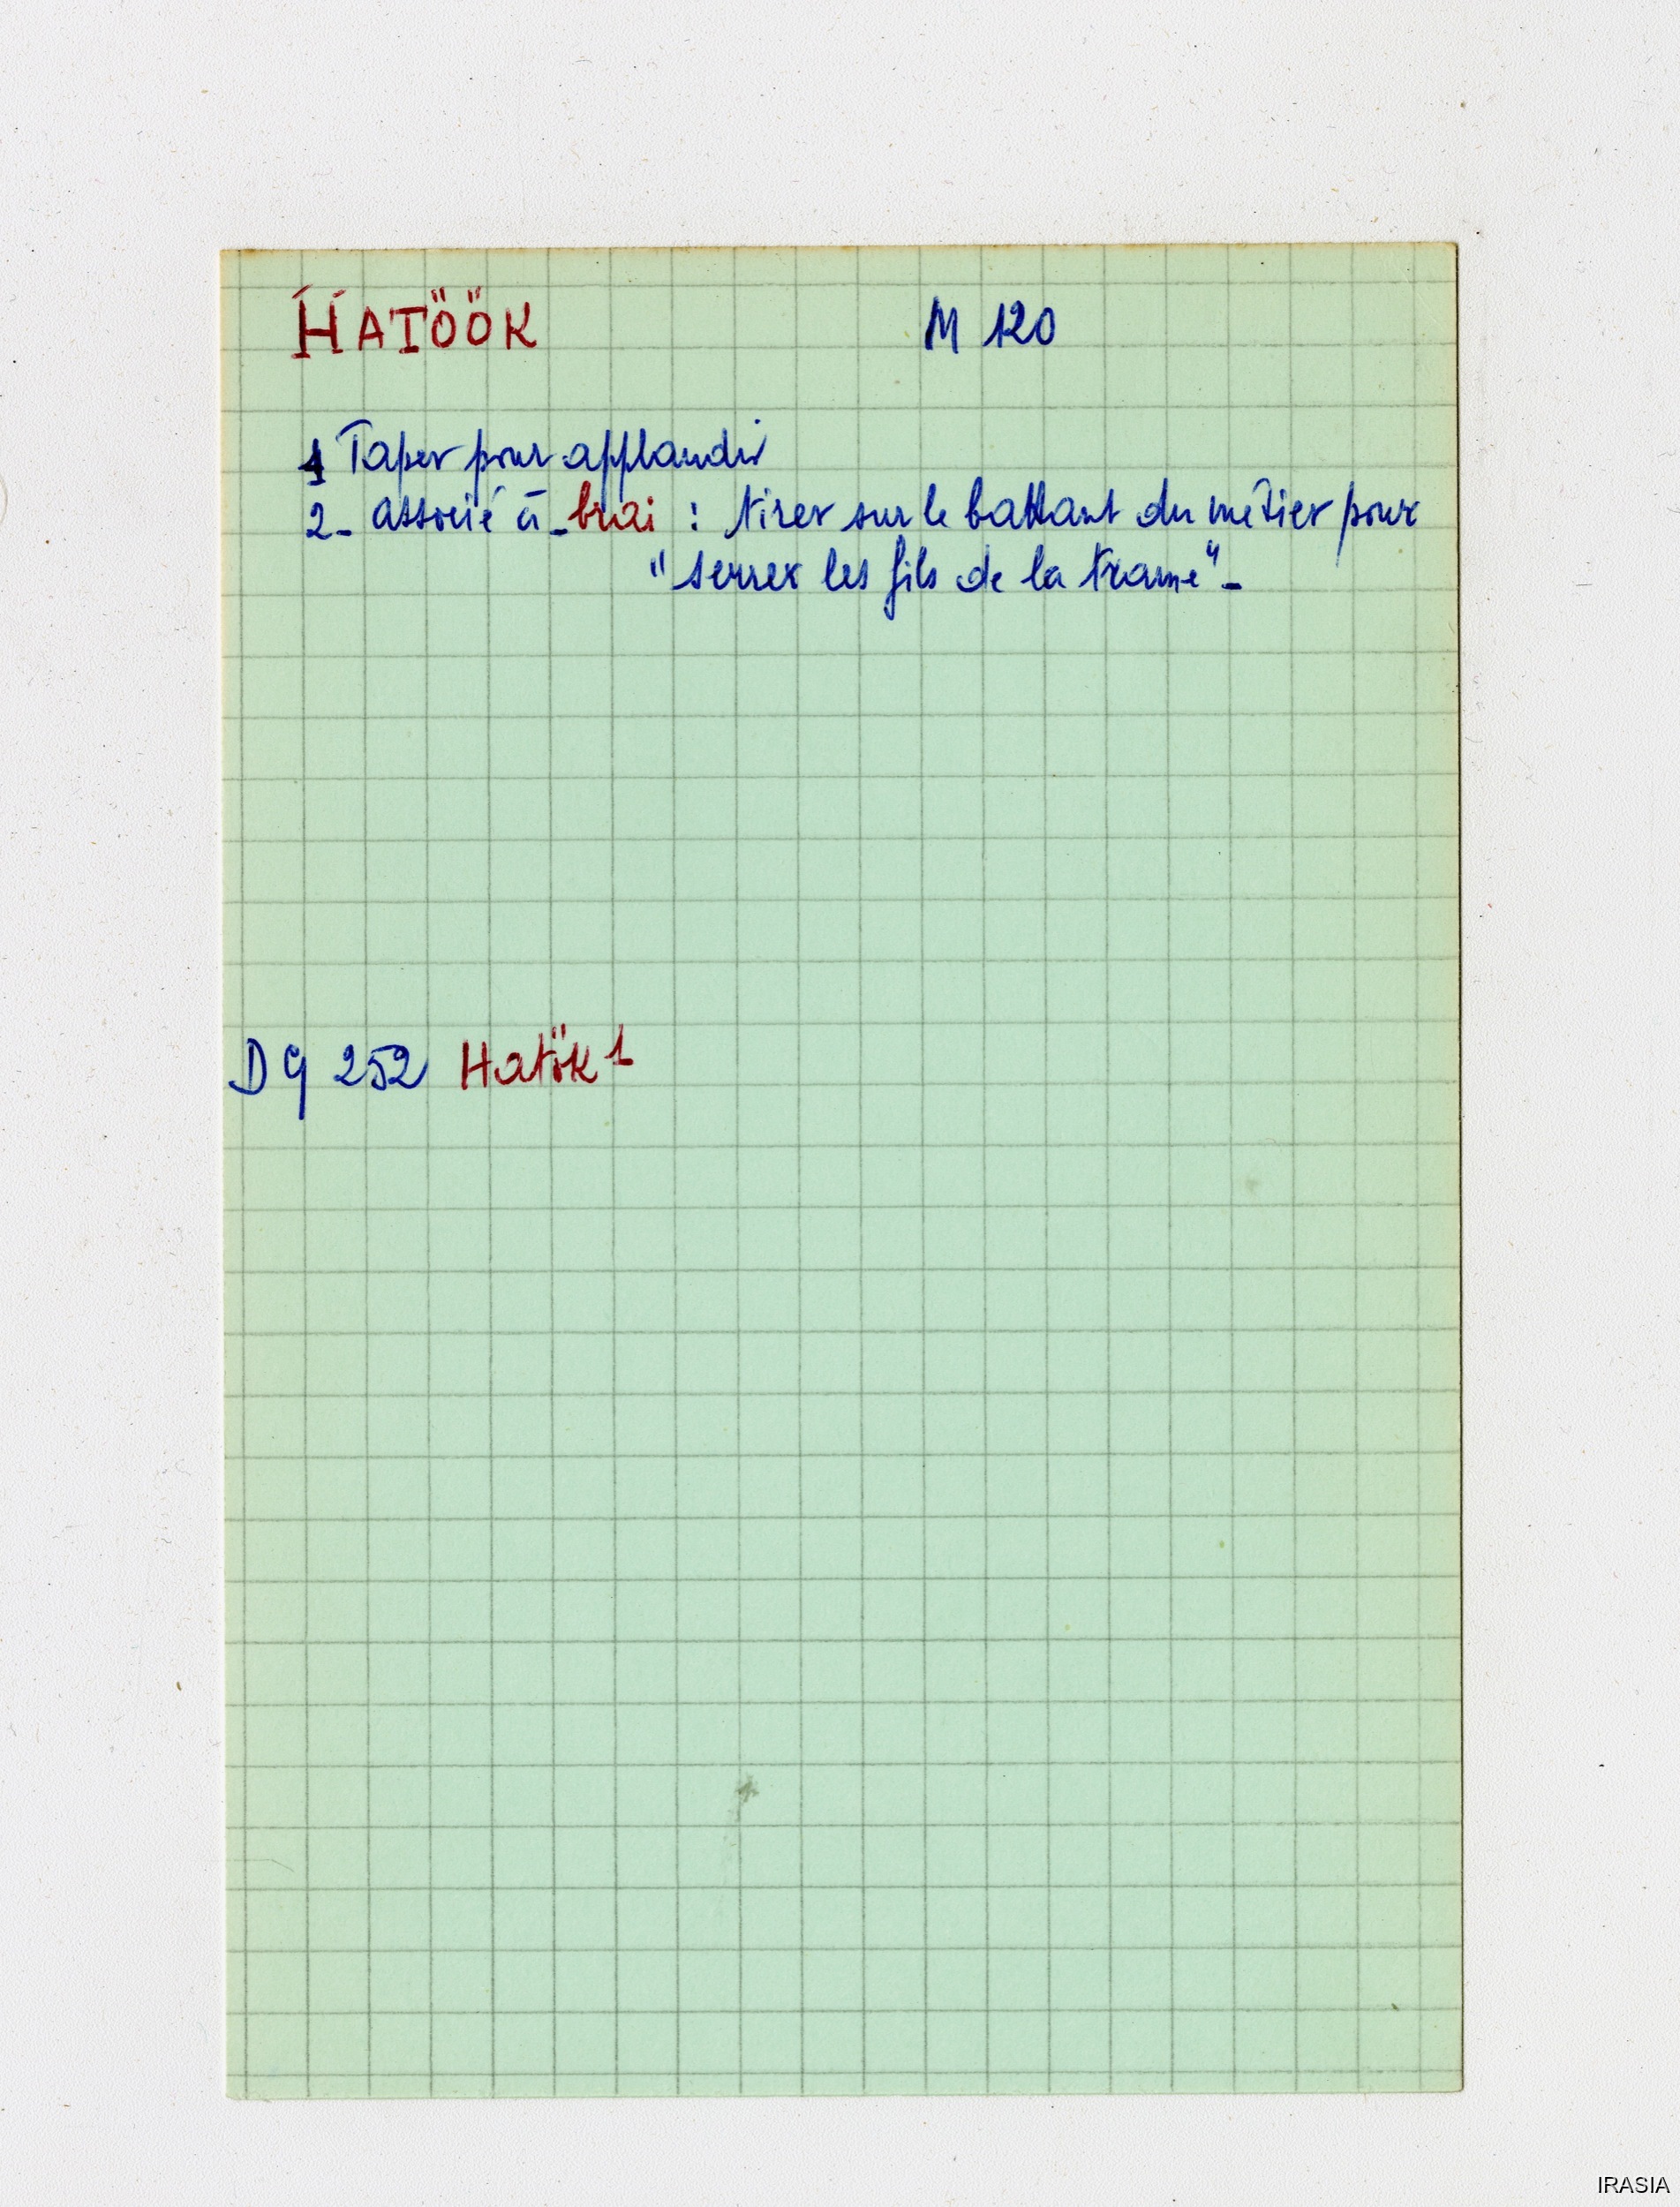 HATÖÖK M 120
1 Taper pour applaudir
2_ associé à _brai : tirer sur le battant du métier pour
"serrer les fils de la trame"_
DG 252 Hatök 1
IRASIA